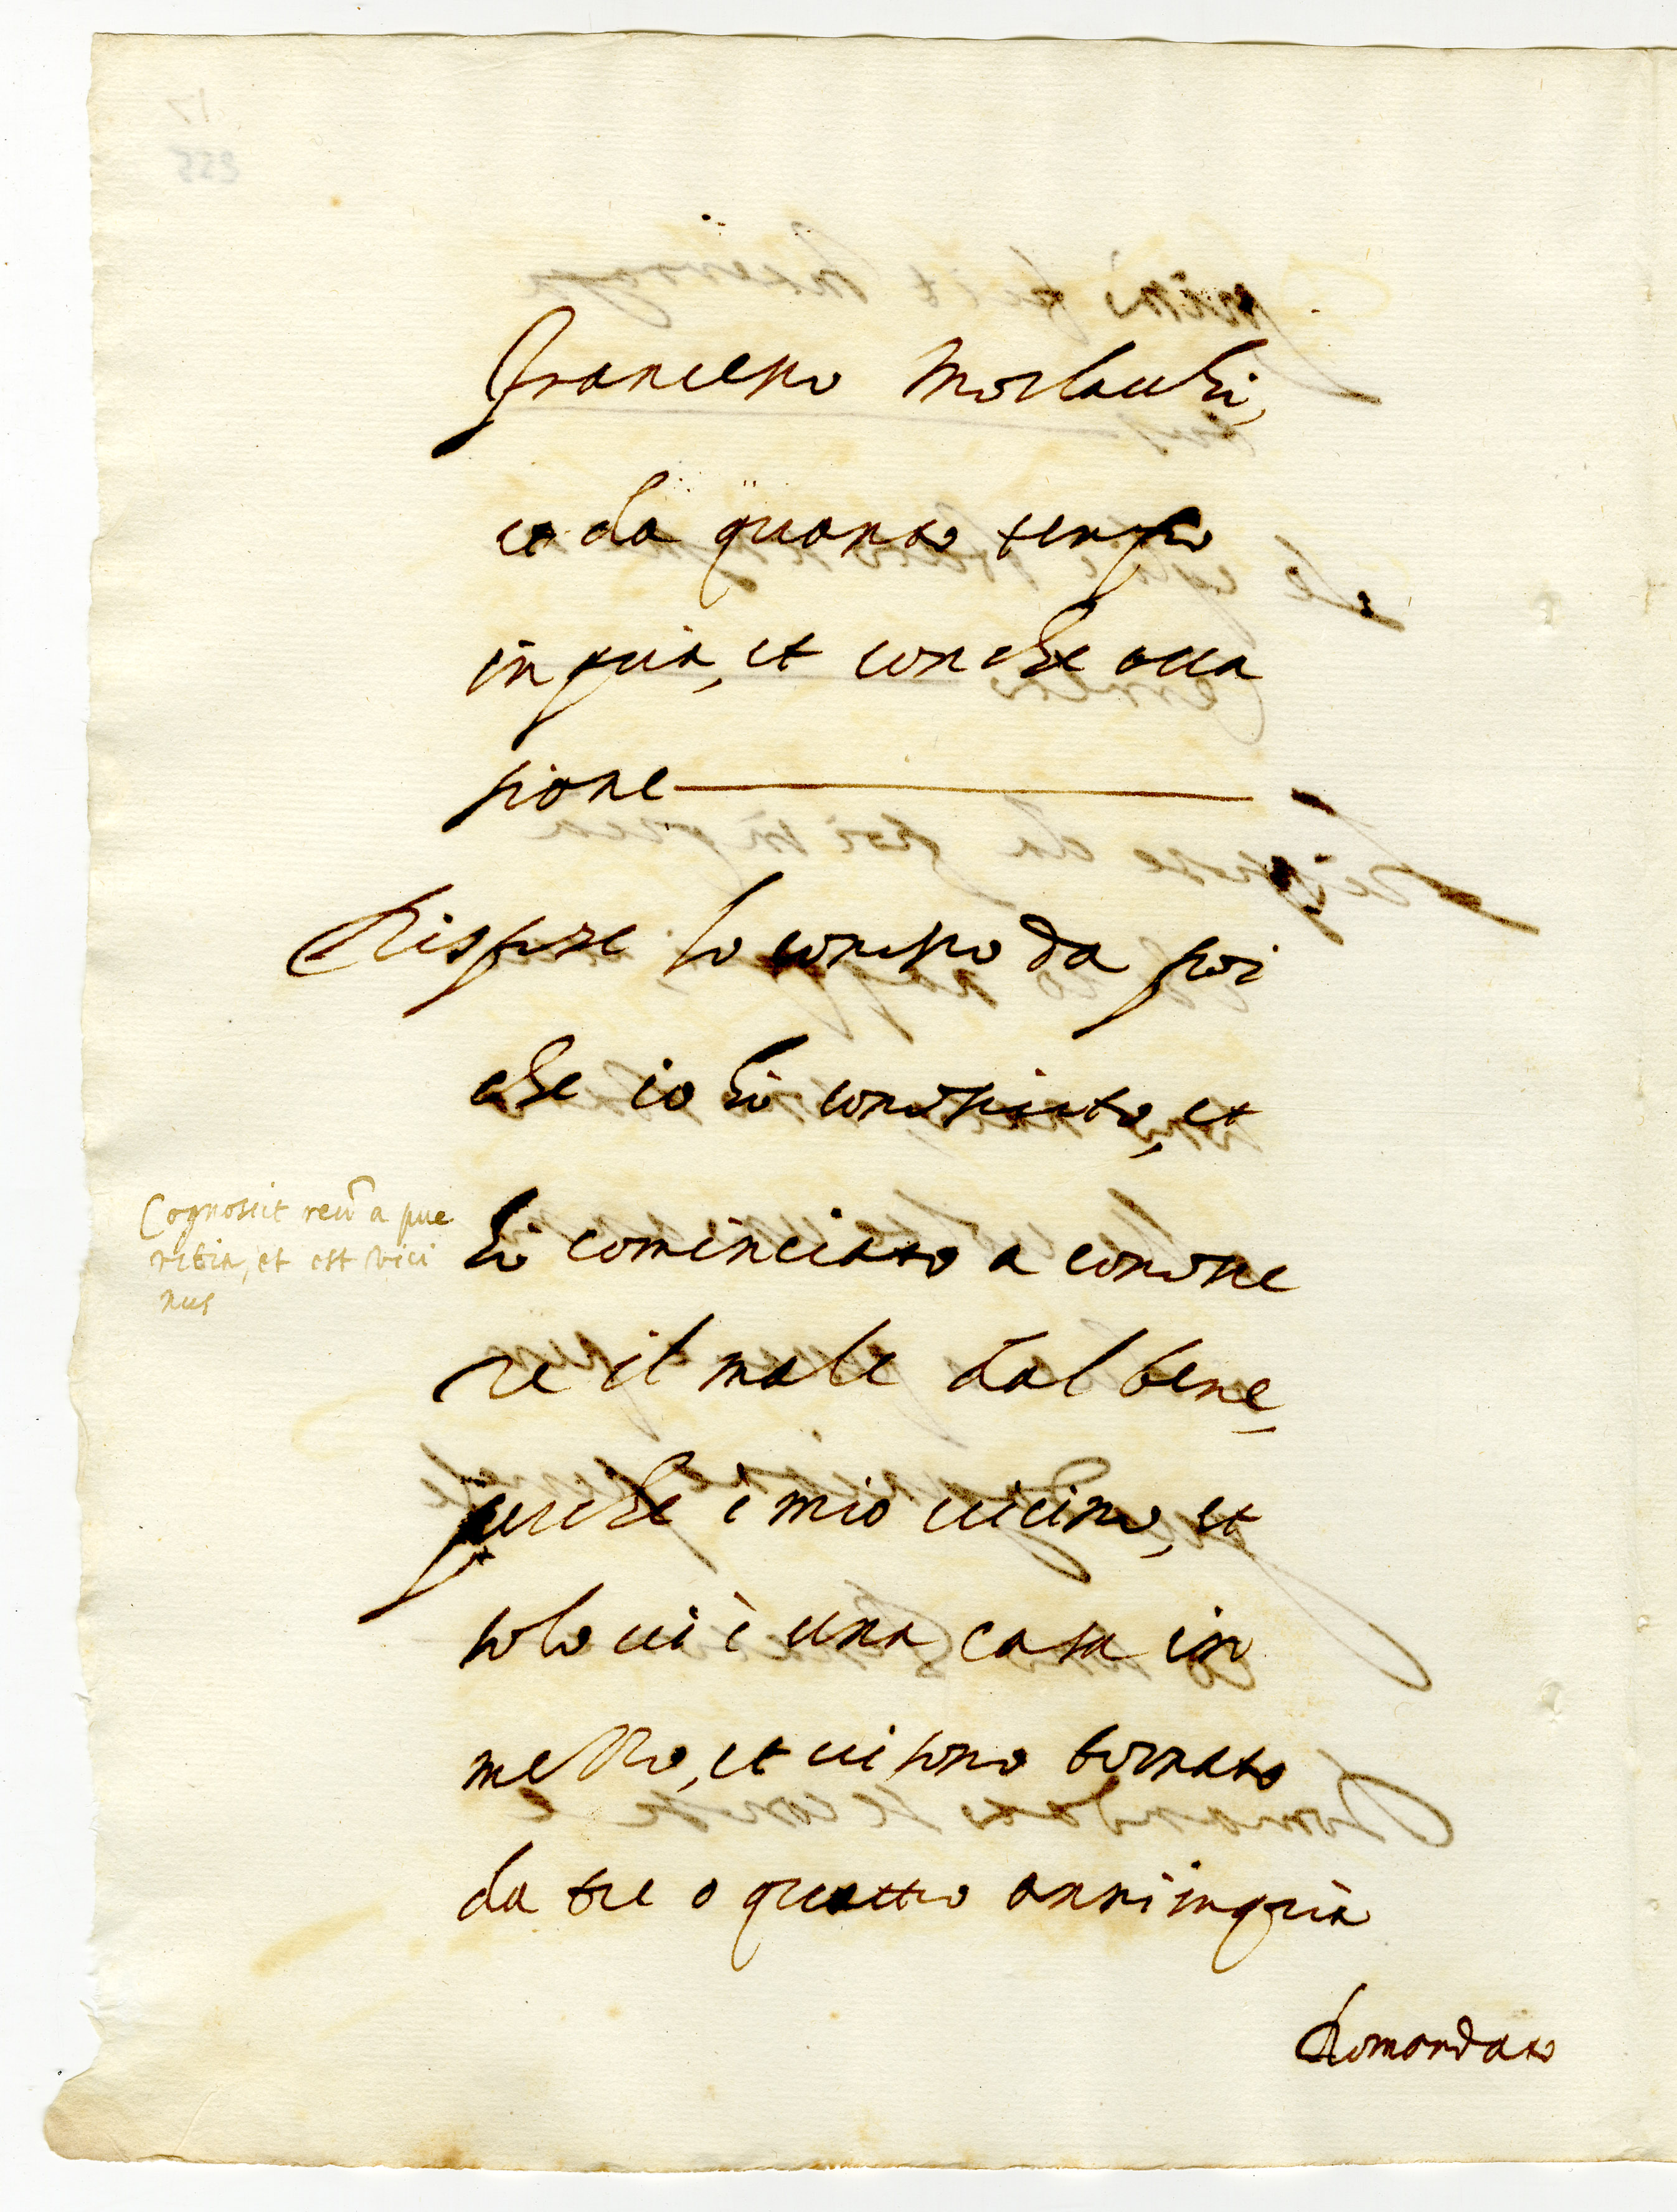 Francesco Morlachi,
et da quanto tempo
in quà, et con che occa
sione
Rispose lo conosco da poi
che io hò conosciuto, et
hò cominciato a conosce
re il male dal bene,
perche è mio vicino, et
solo vi è una casa in
mezzo, et vi sono tornato
da tre o quattro anni in quà
Domandato
Cognoscit reũ a pue
ritia, et est vici
nus